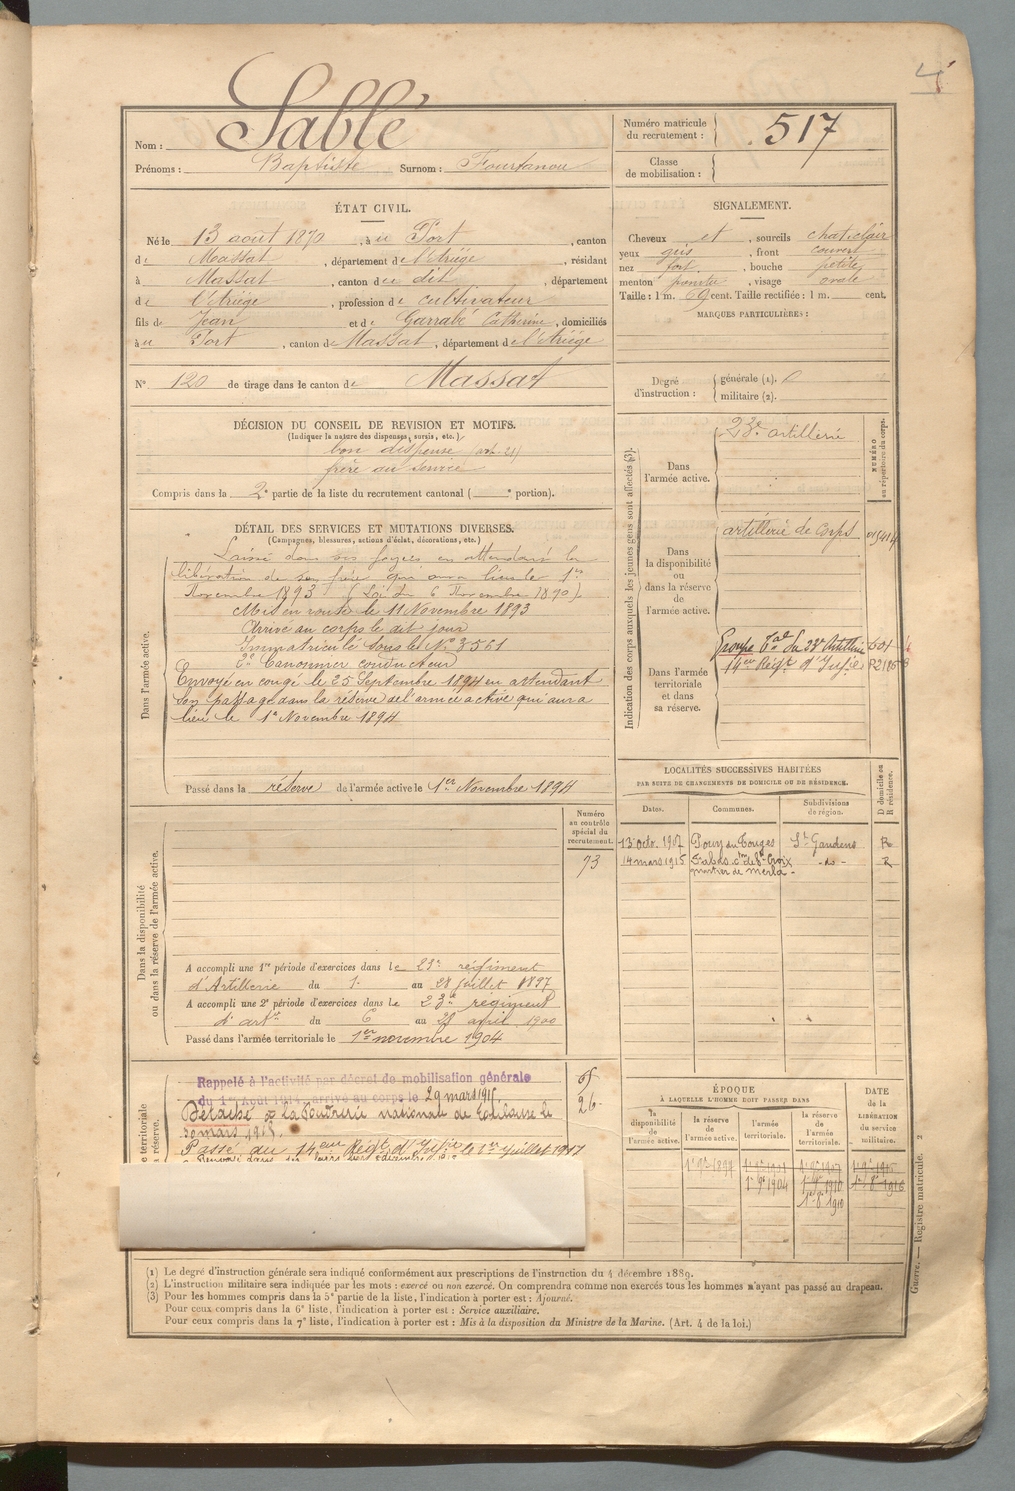 Nom : Sablé
Prénoms : Baptiste Surnom : Fourtanou
Numéro matricule du recrutement : 517
Classe de mobilisation :
ÉTAT CIVIL.
Né le 13 août 1870, à u Port, canton
de Massat, département de l'Ariège, résidant
à Massat, canton du dit, département
de l'Ariège, profession de cultivateur
fils de Jean et de Garrabé Catherine, domiciliés
à u Port, canton de Massat, département de l'Ariège
N° 120 de tirage dans le canton de Massat
SIGNALEMENT.
Cheveux et, sourcils chat. clair
yeux gris, front couvert
nez fort, bouche petite
menton pointu, visage ovale
Taille : 1 m. 69 cent. Taille rectifiée : 1 m. cent.
MARQUES PARTICULIÈRES :
Degré d'instruction : générale (1). 0
militaire (2).
DÉCISION DU CONSEIL DE REVISION ET MOTIFS.
(Indiquer la nature des dispenses, sursis, etc.)
bon dispensé (art. 21)
frère au service
Compris dans la 2e partie de la liste du recrutement cantonal ( e portion).
DÉTAIL DES SERVICES ET MUTATIONS DIVERSES.
(Campagnes, blessures, actions d'éclat, décorations, etc.)
Dans l'armée active.
Laissé dans ses foyers en attendant la
libération de son frère qui aura lieu le 1er
Novembre 1893 (Loi du 6 Novembre 1890).
Mis en route le 11 Novembre 1893
Arrivé au corps le dit jour
Immatriculé sous le N° 3561
2e Canonnier conducteur
Envoyé en congé le 25 Septembre 1894 en attendant
son passage dans la réserve de l'armée active qui aura
lieu le 1er Novembre 1894
Passé dans la réserve de l'armée active le 1er Novembre 1894
Indication des corps auxquels les jeunes gens sont affectés (3).
NUMÉRO au répertoire du corps.
Dans l'armée active.
23e artillerie
Dans la disponibilité ou dans la réserve de l'armée active.
artillerie de Corps
Dans l'armée territoriale et dans sa réserve.
Groupe Tal du 23e Artillerie 601
14er Régt d'Infie
LOCALITÉS SUCCESSIVES HABITÉES
PAR SUITE DE CHANGEMENTS DE DOMICILE OU DE RÉSIDENCE.
Dates. Communes. Subdivisions de région. D domicile ou R résidence.
13 octo. 1907 Pouy de Touges St Gaudens R
14 mars 1915 -do- R
quartier de Merla -
Dans la disponibilité ou dans la réserve de l'armée active.
Numéro au contrôle spécial du recrutement.
73
A accompli une 1re période d'exercices dans le 23e régiment
d'Artillerie du 1er au 28 Juillet 1897
A accompli une 2e période d'exercices dans le 23e régiment
d'artie du 6 au avril 1900
Passé dans l'armée territoriale le 1er novembre 1904
Rappelé à l'activité par décret de mobilisation générale
du 1er Août 1914, arrivé au corps le 29 mars 1915.
Détaché à La Poudrerie nationale de Toulouse le
30 mars 1915.
Passé au 14eme Régt d'Infie le 1er Juillet 1917
ÉPOQUE
À LAQUELLE L'HOMME DOIT PASSER DANS
la disponibilité de l'armée active. la réserve de l'armée active. l'armée territoriale. la réserve de l'armée territoriale.
DATE de la LIBÉRATION du service militaire.
Guerre. — Registre matricule. 2
(1) Le degré d'instruction générale sera indiqué conformément aux prescriptions de l'instruction du 4 décembre 1889.
(2) L'instruction militaire sera indiquée par les mots : exercé ou non exercé. On comprendra comme non exercés tous les hommes n'ayant pas passé au drapeau.
(3) Pour les hommes compris dans la 5e partie de la liste, l'indication à porter est : Ajourné.
Pour ceux compris dans la 6e liste, l'indication à porter est : Service auxiliaire.
Pour ceux compris dans la 7e liste, l'indication à porter est : Mis à la disposition du Ministre de la Marine. (Art. 4 de la loi.)